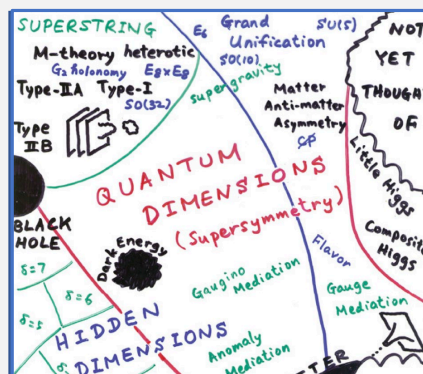 SUPERSTRING
M-theory heterotic
G₂ holonomy E8×E8
Type-IIA Type-I
SO(32)
Type
IIB
E6
Grand
Unification
SU(5)
SO(10)
supergravity
Matter
Anti-matter
Asymmetry
CP
NOT
YET
THOUGHT
OF
Little Higgs
Composite
Higgs
QUANTUM
DIMENSIONS
(Supersymmetry)
BLACK
HOLE
Dark Energy
δ=7
δ=6
δ=5
HIDDEN
DIMENSIONS
Gaugino
Mediation
Flavor
Gauge
Mediation
Anomaly
Mediation